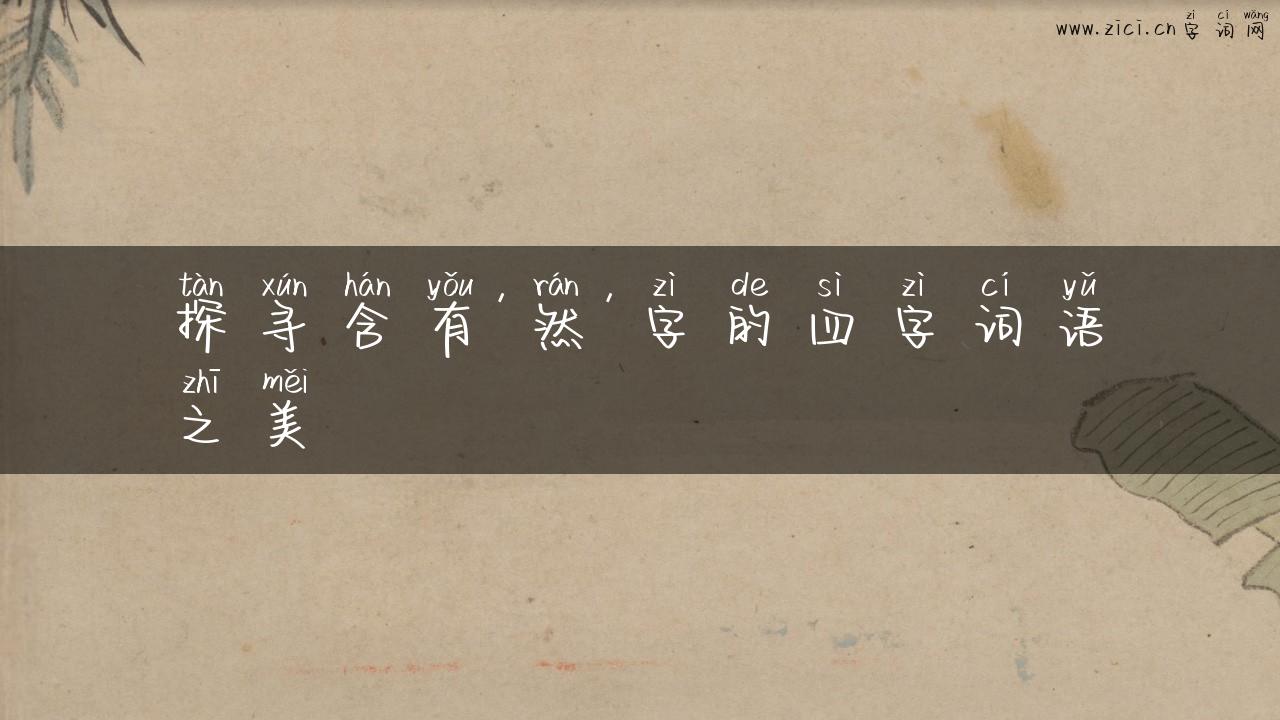 zì cí wǎng
www.zici.cn 字词网
tàn xún hán yǒu , rán , zì de sì zì cí yǔ
探寻含有 然 字的四字词语
zhī měi
之美